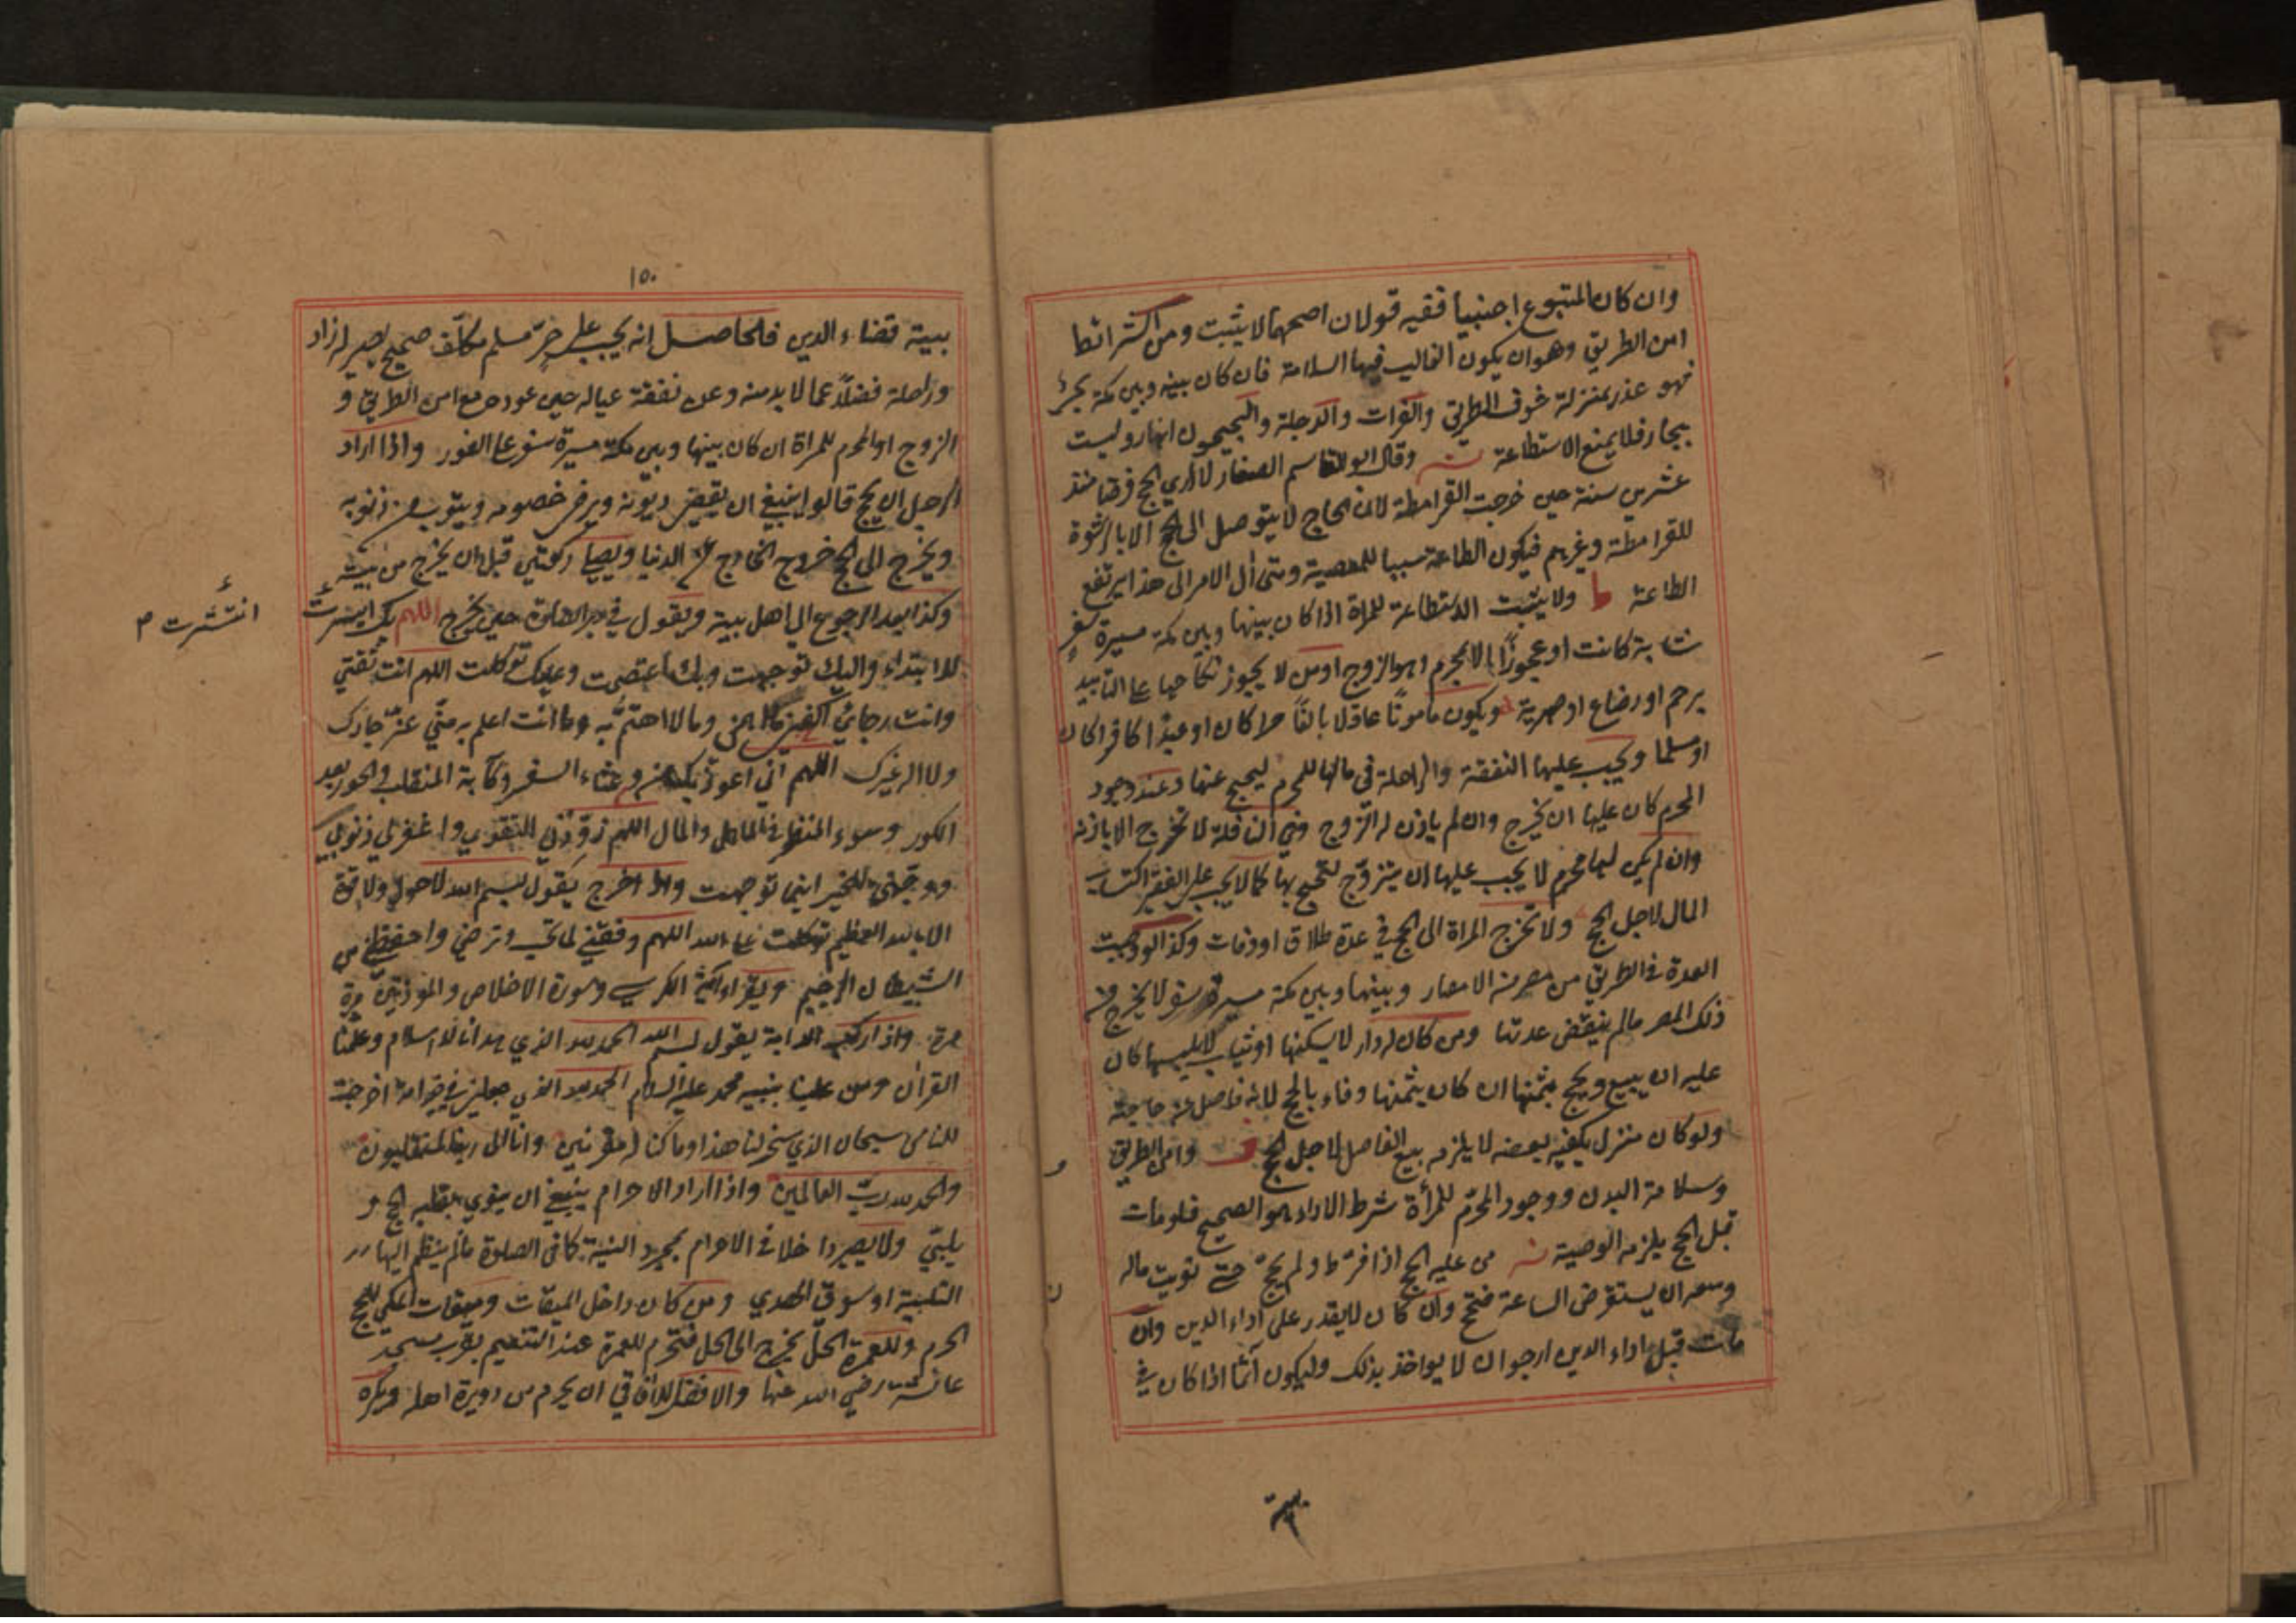 وان كان المتبوع اجنبيا ففيه قولان اصحهما لا يثبت ومن الشرائط
امن الطريق وهو ان يكون الغالب فيها السلامة فان كان بينه وبين مكة بحرٌ
فهو عذر بمنزلة خوف الطريق والفرات والدجلة والجيحون انهار وليست
ببحار فلا يمنع الاستطاعة وقال ابو القاسم الصفار لا اري الحج فرضا منذ
عشرين سنة حين خرجت القرامطة لان الحاج لا يتوصل الى الحج الا بالرشوة
للقرامطة وغيرهم فيكون الطاعة سببا للمعصية ومتى آل الامر الى هذا يرتفع
الطاعة ط ولا يثبت الاستطاعة للمراة اذا كان بينها وبين مكة مسيرة سفرٍ
شابة كانت او عجوزًا الا بمحرم وهو الزوج او من لا يجوز نكاحها على التابيد
برحم او رضاع او صهرية ويكون مامونًا عاقلا بالغًا حرا كان او عبدًا كافرا كان
او مسلما ويجب عليها النفقة والراحلة في مالها للمحرم ليحج عنها وعند وجود
المحرم كان عليها ان يخرج وان لم ياذن له الزوج وفي النافلة لا تخرج الا باذنه
وان لم يكن لها محرم لا يجب عليها ان يتزوج لتحج بها كما لا يجب على الفقير اكتساب
المال لاجل الحج ولا تخرج المراة الى الحج في عدة طلاق او وفات وكذا لو وجبت
العدة في الطريق من مصر من الامصار وبينها وبين مكة مسيرة سفر لا يخرج من
ذلك المصر مالم ينقض عدتها ومن كان له دار لا يسكنها او ثياب لا يلبسها كان
عليه ان يبيع ويحج بثمنها ان كان بثمنها وفاء بالحج لانه فاضل عن حاجته
ولو كان منزل يكفيه بعضه لا يلزمه بيع الفاضل لاجل الحج وامن الطريق
وسلامة البدن ووجود المحرم للمرأة شرط الاداء هو الصحيح فلومات
قبل الحج يلزمه الوصية من عليه الحج اذا فرّط ولم يحج حتى تويت ماله
وسعه ان يستقرض الساعة فتحج وان كان لا يقدر على اداء الدين وان
مات قبل اداء الدين ارجو ان لا يواخذ بذلك ولا يكون آثما اذا كان في
بيته
١٥٠
بيته قضاء الدين فالحاصل انه يجب على حرّ مسلم مكلّف صحيح بصير له زاد
وراحلة فضلًا عما لا بد منه وعن نفقة عياله حين عوده مع امن الطريق و
الزوج او المحرم للمراة ان كان بينها وبين مكة مسيرة سفر على الفور واذا اراد
الرجل ان يحج قالوا ينبغي ان يقضي ديونه ويرضي خصومه ويتوب من ذنوبه
ويخرج الى الحج خروج الخارج عن الدنيا ويصلي ركعتين قبل ان يخرج من بيته
وكذا بعد الرجوع الى اهل بيته ويقول في دبر الصلوة حين يخرج اللهم بك
انتشرت
للابتداء واليك توجهت وبك اعتصمت وعليك توكلت اللهم انت ثقتي
وانت رجائي اكفني ما اهمني ومالا اهتمّ به وما انت اعلم به منّي عزّ جارك
ولا اله غيرك اللهم اني اعوذ بك من وعثاء السفر وكآبة المنقلب والحور بعد
الكور وسوء المنظر في الاهل والمال اللهم زوّدني التقوي واغفر لي ذنوبي
ووجّهني للخير اينما توجهت واذا خرج يقول بسم الله لا حول ولا قوة
الا بالله العظيم توكلت على الله اللهم وفقني لما تحب وترضي واحفظني من
الشيطان الرجيم ويقراء اية الكرسي وسورة الاخلاص والمعوذتين مرة
مرة واذا ركب الدابة يقول بسم الله الحمد لله الذي هدانا للاسلام وعلّمنا
القرآن ومن علينا بنبيه محمد عليه السلام الحمد لله الذي جعلني في خير امة اخرجت
للناس سبحان الذي سخر لنا هذا وما كنا له مقرنين وانا الى ربنا لمنقلبون
والحمد لله ربّ العالمين واذا اراد الاحرام ينبغي ان ينوي بقلبه الحج و
يلبّي ولا يصير داخلا في الاحرام بمجرد النية كما في الصلوة مالم ينظم اليها
التلبية او سوق الهدي ومن كان داخل الميقات وميقات المكي للحج
الحرم وللعمرة الحلّ يخرج الى الحل فتحرم للعمرة عند التنعيم بقرب مسجد
عائشة رضي الله عنها والافضل للآفاقي ان يحرم من دويرة اهله ويكره